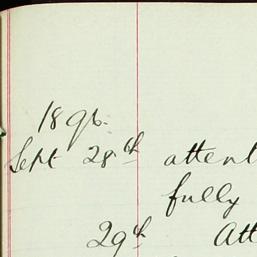 1896.
Sept 28th attent
fully
29th Att